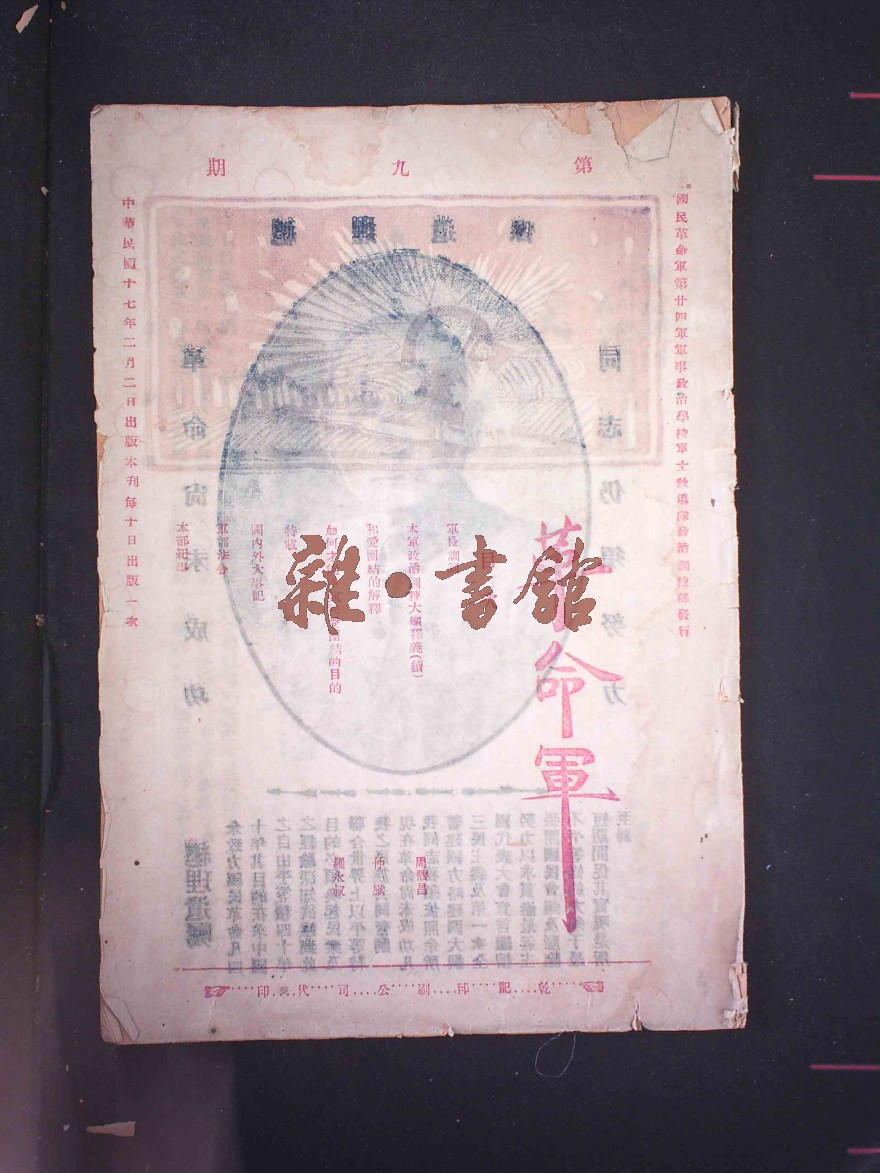 第九期
國民革命軍第廿四軍軍事政治學校軍士敎導隊政治訓練部發行
革命軍
目
軍長訓
本軍政治訓練大綱釋義(續)
和愛團結的解釋
如何才
團結的目的
特載
國內外大事記
軍部法令
本部紀要
周體昌
仲威
羅永叔
中華民國十七年二月二日出版本刊每十日出版一次
乾記印刷公司代印
雜·書館
總理遺像
同志仍須努力
革命尚未成功
總理遺囑
余致力國民革命凡四
十年其目的在求中國
之自由平等積四十年
之經驗深知欲達到此
目的必須喚起民衆及
聯合世界上以平等待
我之民族共同奮鬥
現在革命尚未成功凡
我同志務須依照余所
著建國方略建國大綱
三民主義及第一次全
國代表大會宣言繼續
努力以求貫徹最近主
張開國民會議及廢除
不平等條約尤須於最
短期間促其實現是所
至囑